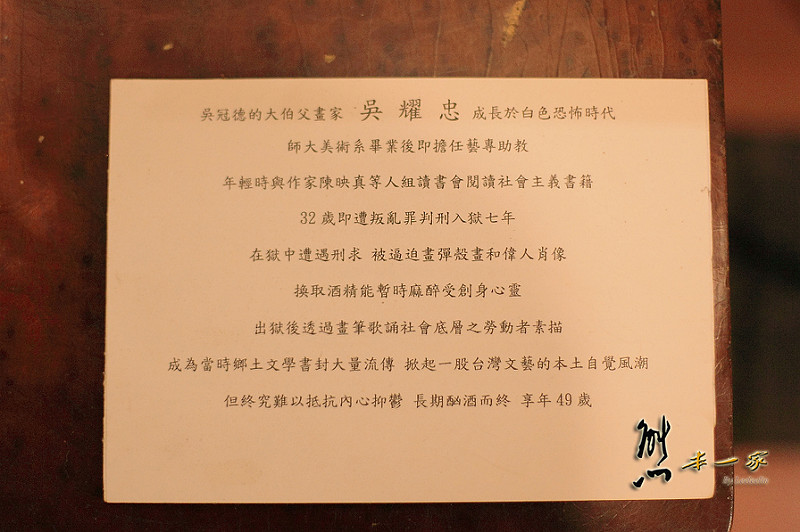 吳冠德的大伯父畫家 吳耀忠 成長於白色恐怖時代
師大美術系畢業後即擔任藝專助教
年輕時與作家陳映真等人組讀書會閱讀社會主義書籍
32歲即遭叛亂罪判刑入獄七年
在獄中遭遇刑求 被逼迫畫彈殼畫和偉人肖像
換取酒精能暫時麻醉受創身心靈
出獄後透過畫筆歌誦社會底層之勞動者素描
成為當時鄉土文學書封大量流傳 掀起一股台灣文藝的本土自覺風潮
但終究難以抵抗內心抑鬱 長期酗酒而終 享年49歲
熊
半一家